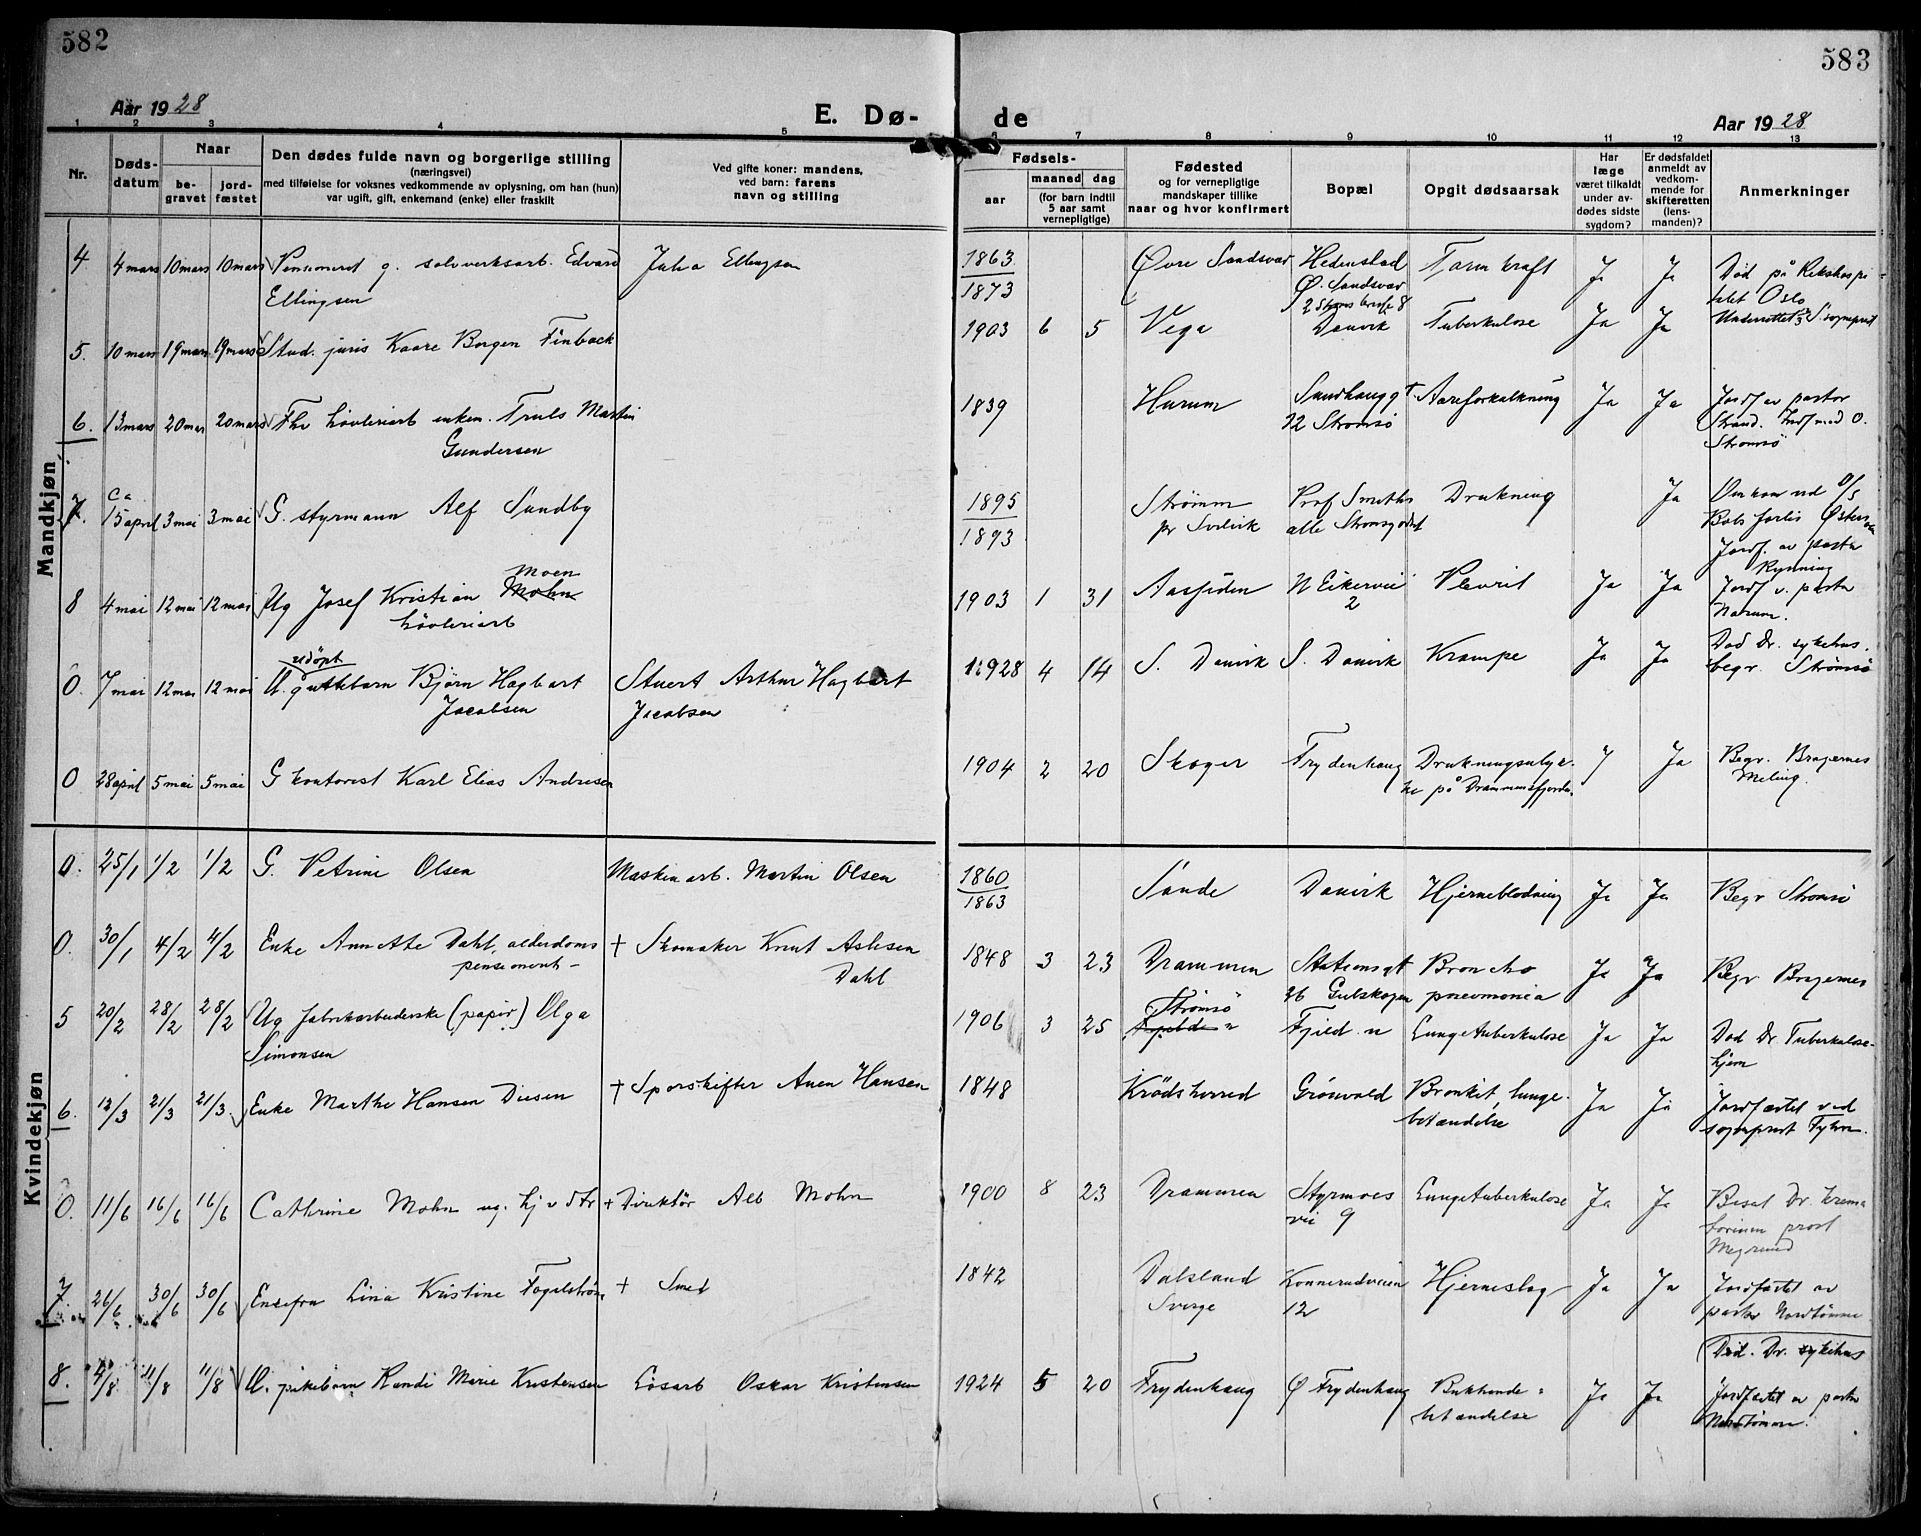 582
583
Aar 1928
E. Dø-
de
Aar 1928
1 2 3 4 5 6 7 8 9 10 11 12 13
Nr.
Døds-
datum
Naar
be-
gravet
jord-
fæstet
Den dødes fulde navn og borgerlige stilling
(næringsvei)
med tilføielse for voksnes vedkommende av oplysning, om han (hun)
var ugift, gift, enkemand (enke) eller fraskilt
Ved gifte koner: mandens,
ved barn: farens
navn og stilling
Fødsels-
aar
maaned dag
(for barn indtil
5 aar samt
vernepligtige)
Fødested
og for vernepligtige
mandskaper tillike
naar og hvor konfirmert
Bopæl
Opgit dødsaarsak
Har
læge
været tilkaldt
under av-
dødes sidste
sygdom?
Er dødsfaldet
anmeldt av
vedkom-
mende for
skifteretten
(lens-
manden)?
Anmerkninger
Mandkjøn
4 4 mars 10 mars 10 mars Pensioneret g. sølvverksarb. Edvard
Ellingsen
Julia Ellingsen
1863
1873
Øvre Sandsvær
Hedenstad
Ø. Sandsvær
Tarmkræft Ja Ja
Død på Rikshospi-
talet Oslo
5. 10 mars 19 mars 19 mars Stud. juris Kaare Borgen Finback
1903 6 5 Vega
Danvik
Tuberkulose Ja Ja
6. 13 mars 20 mars 20 mars Fhv høvleriarb enkem. Truls Martin
Gundersen
1839 Hurum
32 Strømsø
Aareforkalkning Ja Ja
Jordf av pastor
Strand. Indf med O.
Strømsø
7. Ca
15 april 3 mai 3 mai G. styrmann Alf Sundby
1895
1893
Strømm
pr Svelvik
Prof Smiths
alle
Drukning Ja
Omkom ved
Jordf. av pastor
Rynning
8 4 mai 12 mai 12 mai Ug Josef Kristian Mohn
Moen
høvleriarb
1903 1 31 Aassiden N Eikervei
2
Plevrit Ja Ja
Jordf v. pastor
Narum.
0. 7 mai 12 mai 12 mai
udøpt
U. guttebarn Bjørn Hagbart
Jacobsen
Stuert Arthur Hagbart
Jacobsen
1928 4 14 S. Danvik S. Danvik Krampe Ja Ja
Død Dr. sykehus.
begr. Strømsø
0 28 april 5 mai 5 mai G kontorist Karl Elias Andresen
1904 2 20 Skoger Frydenhaug Drukningsulyk-
ke på Drammensfjorden.
J Ja
Begr. Bragernes
Meling.
Kvindekjøn
0. 25/1 1/2 1/2 G. Petrine Olsen
Maskinarb. Martin Olsen
1860
1863
Sande Danvik Hjerneblødning Ja Ja Begr Strømsø
0. 30/1 4/2 4/2 Enke Annette Dahl, alderdoms
pensionert-
† Skomaker Knut Aslesen
Dahl
1848 3 23 Drammen Stationsgt
26 Gulskogen
Broncho
pneumonia
Ja Ja Begr Bragernes
5 20/2 28/2 28/2 Ug fabrikarbeiderske (papir) Olga
Simonsen
1906 3 25
Strømsø
Fjeld. n
Lungetuberkulose Ja Ja
Død Dr Tuberkulose-
hjem
6. 12/3 21/3 21/3. Enke Marthe Hansen Diesen
† Sporskifter Aven Hansen
1848 Krødsherred Grønvold Bronkit, lunge-
betændelse
Ja Ja
Jordfæstet ved
sogneprest
0. 11/6 16/6 16/6 Cathrine Mohn ug. hj v d fr
† Direktør Alb Mohn
1900 8 23 Drammen Styrmoes
vei 9
Lungetuberkulose Ja Ja
Bisat Dr. krema
torium prost
7. 26/6 30/6 30/6 Enkefru Lina Kristine Fogelstrøm
† Smed
1842 Dalsland
Sverge
Konnerudveien
12
Hjerneslag Ja Ja
Jordfæstet av
pastor Nordtømme
8. 4/8 11/8 11/8 U. pikebarn Randi Marie Kristensen
Løsarb Oskar Kristensen
1924 5 20 Frydenhaug Ø Frydenhaug Bukhinde-
betændelse
Ja Ja
Død. Dr. sykehus
Jordfæstet av pastor
Nordtømme.